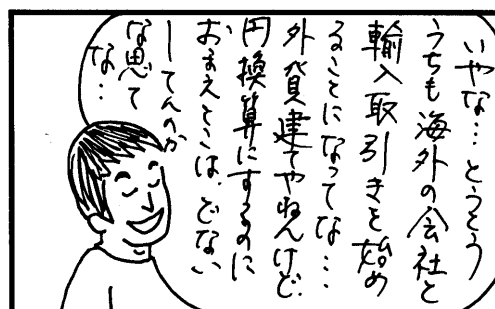 いやな…とうとう
うちも海外の会社と
輸入取引きを始め
ることになってな…
外貨建てやねんけど、
円換算にするのに
おまえとこは、どない
してんのか
な思て
な…